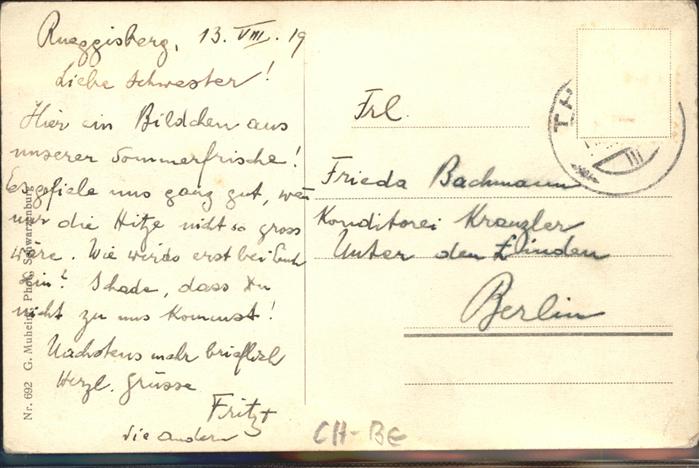 Rueggisberg, 13. VIII. 19
Liebe Schwester!
Hier ein Bildchen aus
unserer Sommerfrische!
Es gefiele uns ganz gut, wen
nur die Hitze nicht so gross
wäre. Wie wirds erst bei Euch
sein? Schade, dass Du
nicht zu uns kommst!
Nächstens mehr brieflich
Herzl. Grüsse
Fritz +
die andern
Frl.
Frieda Bachmann
Konditorei Kranzler
Unter den Linden
Berlin
Nr. 692 G. Muheim, Phot., Schwarzenburg
CH-BE